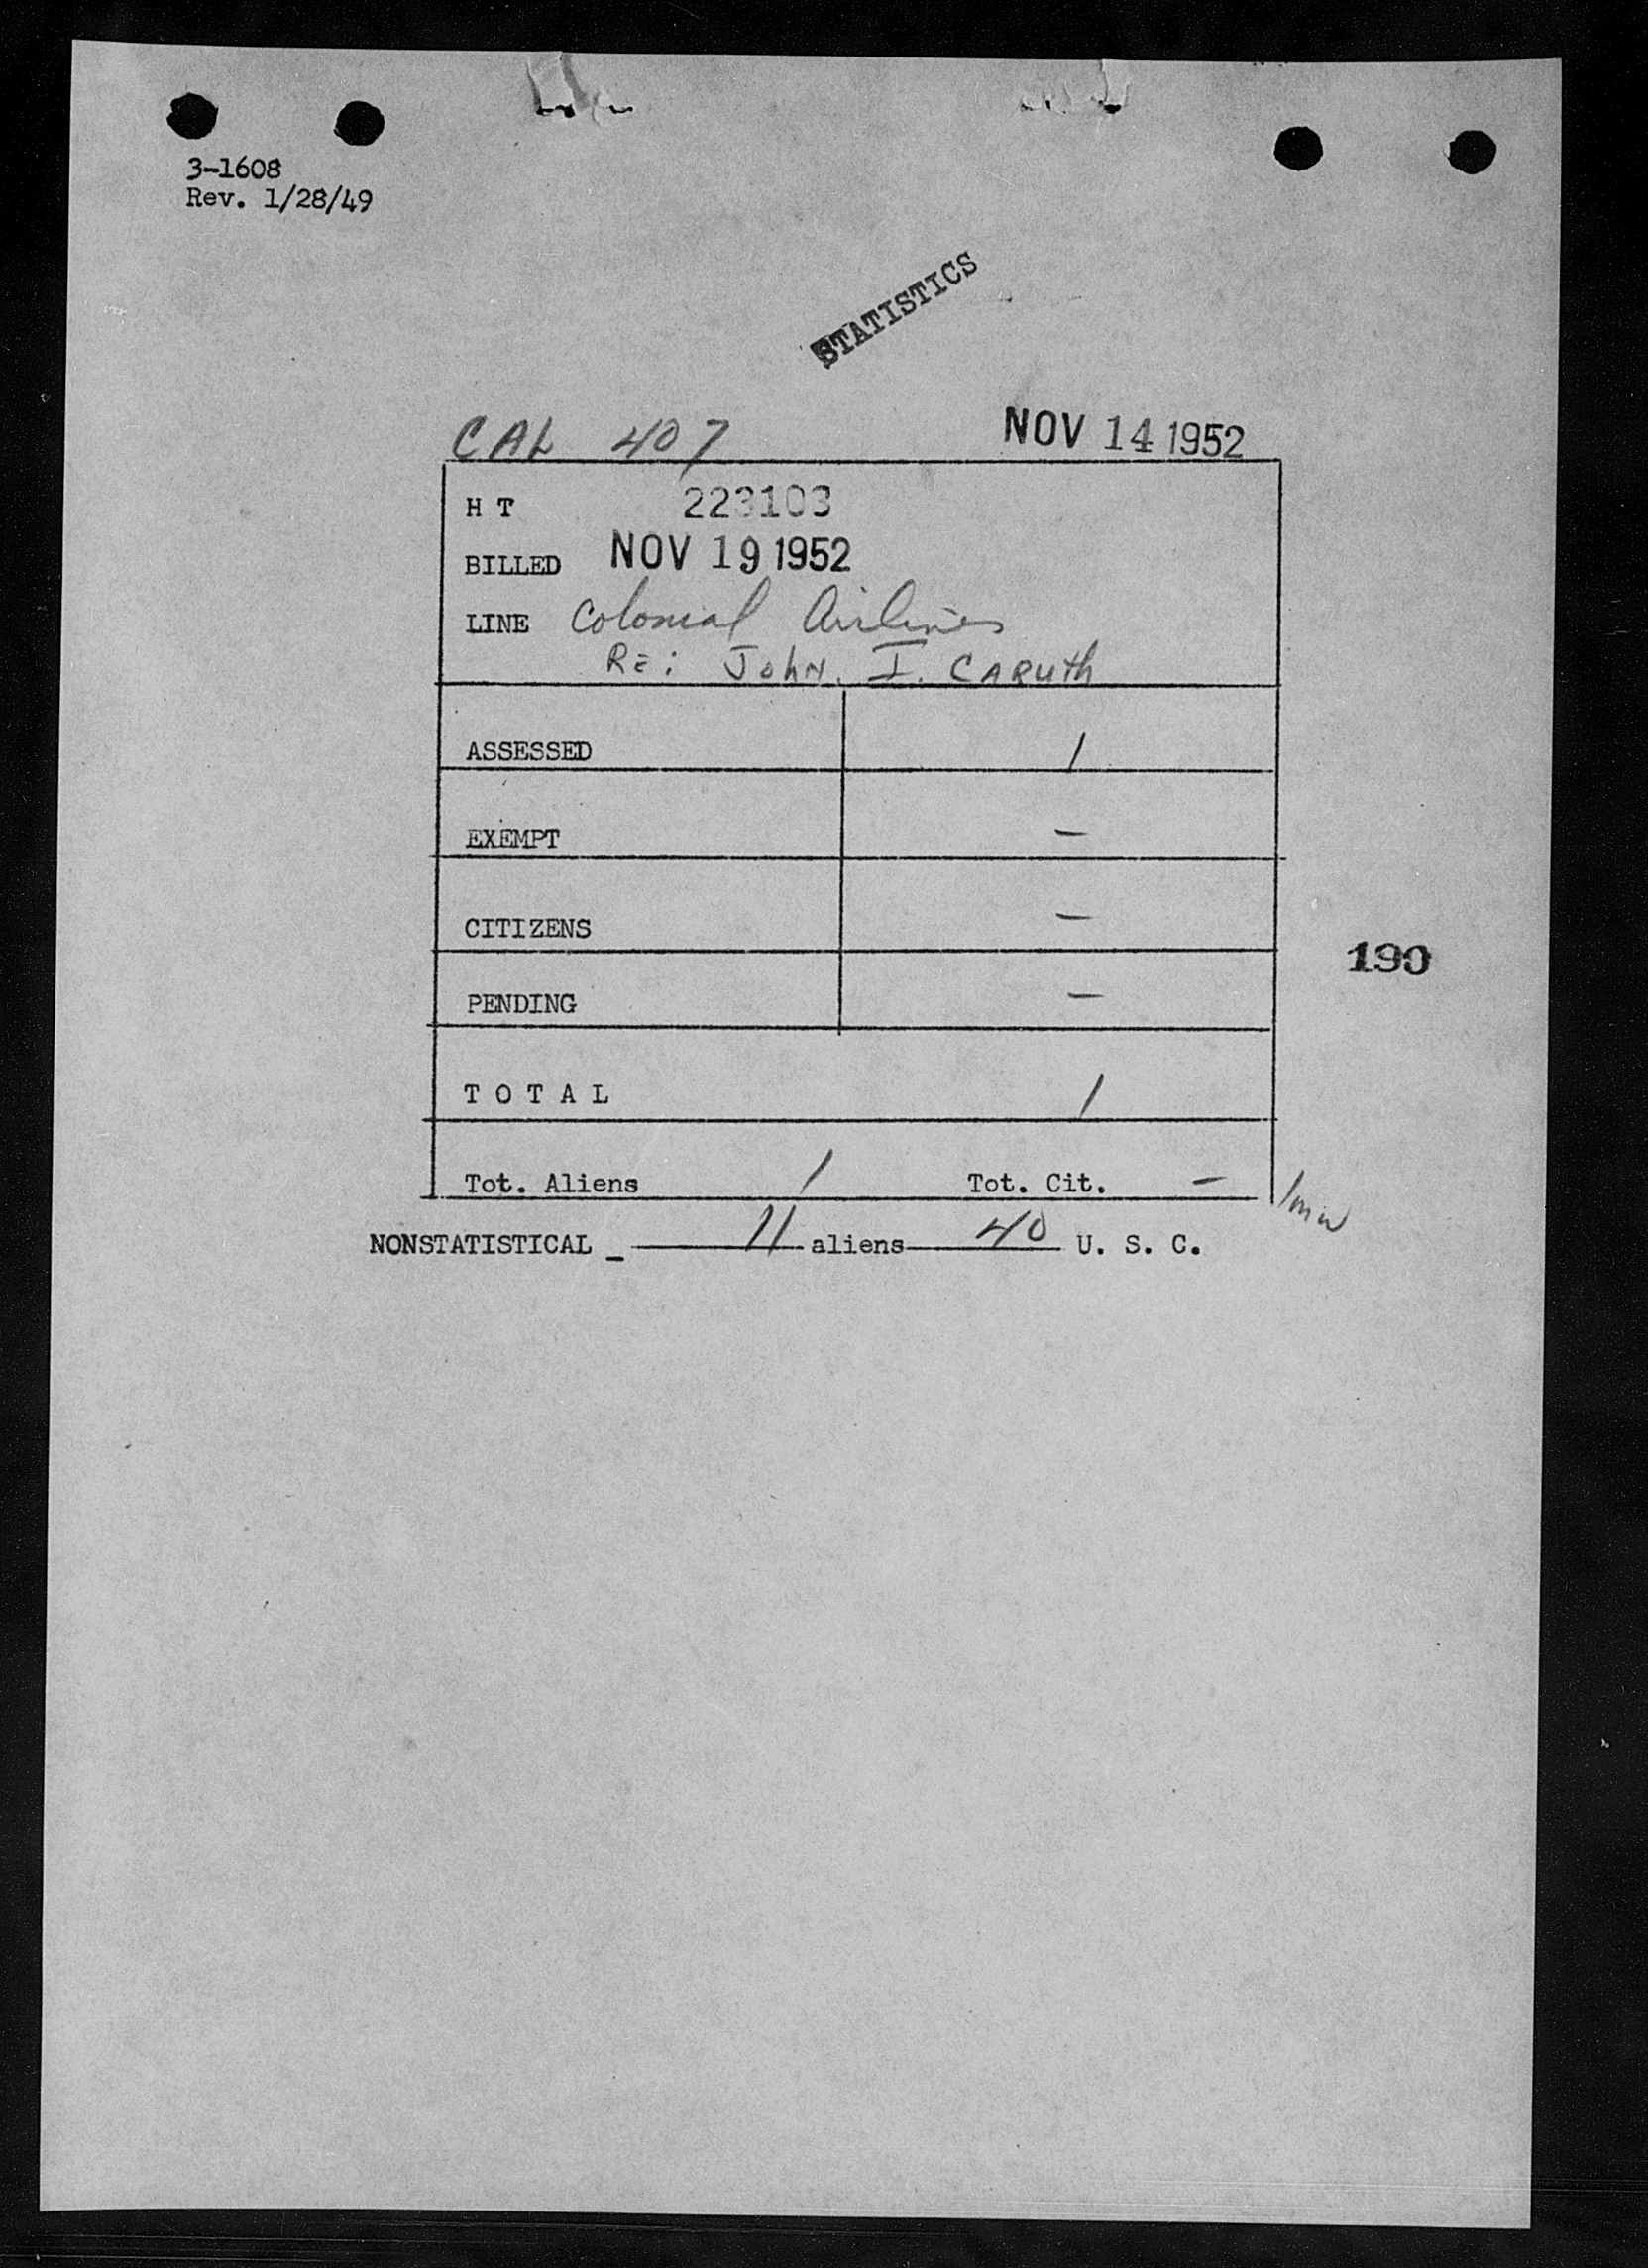 3-1608
Rev. 1/28/49
STATISTICS
CAL 407 NOV 14 1952
H T 223103
BILLED NOV 19 1952
LINE Colonial Airlines
RE: JohN. I. CARUth
ASSESSED 1
EXEMPT —
CITIZENS —
190
PENDING —
T O T A L 1
Tot. Aliens 1 Tot. Cit. —
NONSTATISTICAL _ 11 aliens 40 U. S. C.